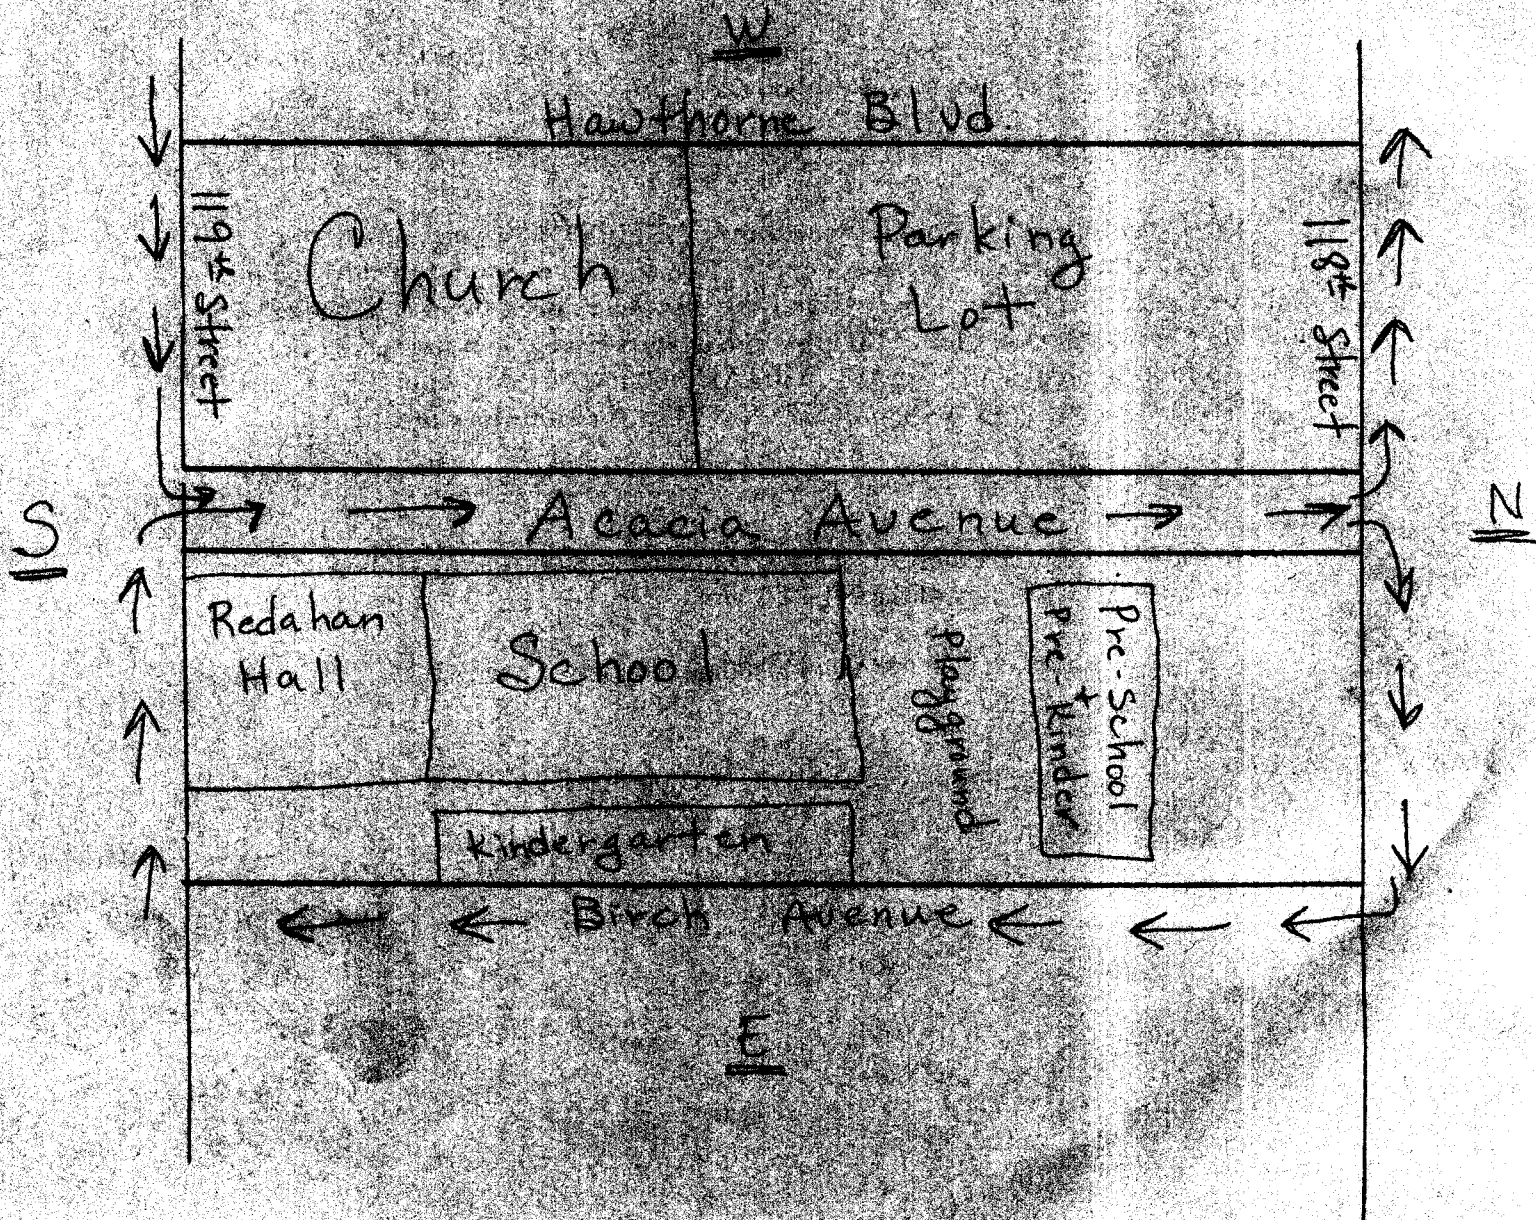 W
Hawthorne Blvd.
119th Street
Church
Parking
Lot
118th Street
S
Acacia Avenue
N
Redahan
Hall
School
Playground
Pre-School
+
Pre-Kinder
Kindergarten
Birch Avenue
E